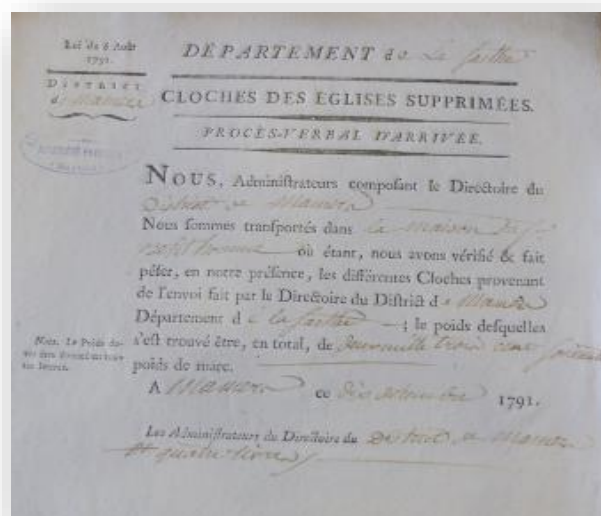 Loi du 6 Août
1791.
DISTRICT
de Mamers
DÉPARTEMENT de La Sarthe
CLOCHES DES EGLISES SUPPRIMÉES.
PROCÈS-VERBAL D'ARRIVÉE.
NOUS, Administrateurs composant le Directoire du
District de Mamers
Nous sommes transportés dans la maison
où étant, nous avons vérifié & fait
péser, en notre présence, les différentes Cloches provenant
de l'envoi fait par le Directoire du District de Mamers
Département de la Sarthe ; le poids desquelles
s'est trouvé être, en total, de deux mille trois cent
poids de marc.
Nota. Le Poids
A Mamers ce dix 1791.
Les Administrateurs du Directoire du District de Mamers
et quatre livres